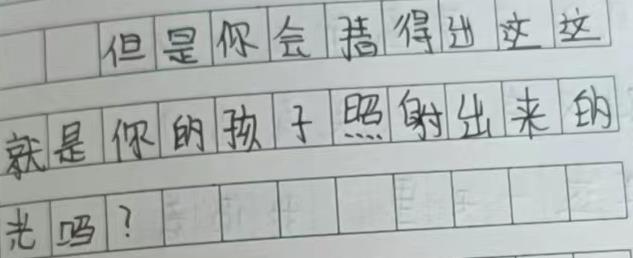 但是你会猎得出这这
就是你的孩子照射出来的
光吗？